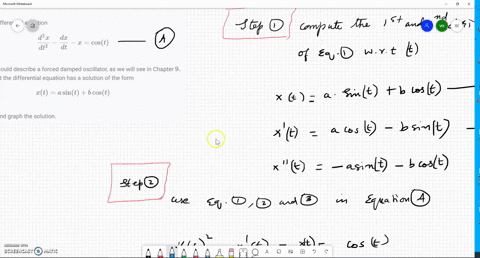 Microsoft Whiteboard
Step ① compute the 1st and
of Eq. ① w.r.t (t)
d²x/dt² - dx/dt - x = cos(t) — Ⓐ
ould describe a forced damped oscillator, as we will see in Chapter 9.
t the differential equation has a solution of the form
x(t) = a sin(t) + b cos(t)
nd graph the solution.
x(t) = a. sin(t) + b cos(t) —
x'(t) = a cos(t) - b sin(t) -
x''(t) = -a sin(t) - b cos(t)
Step ②
use Eq. ①, ② and ③ in Equation Ⓐ
x'(t) - x(t) = cos(t)
SCREENCAST-O-MATIC